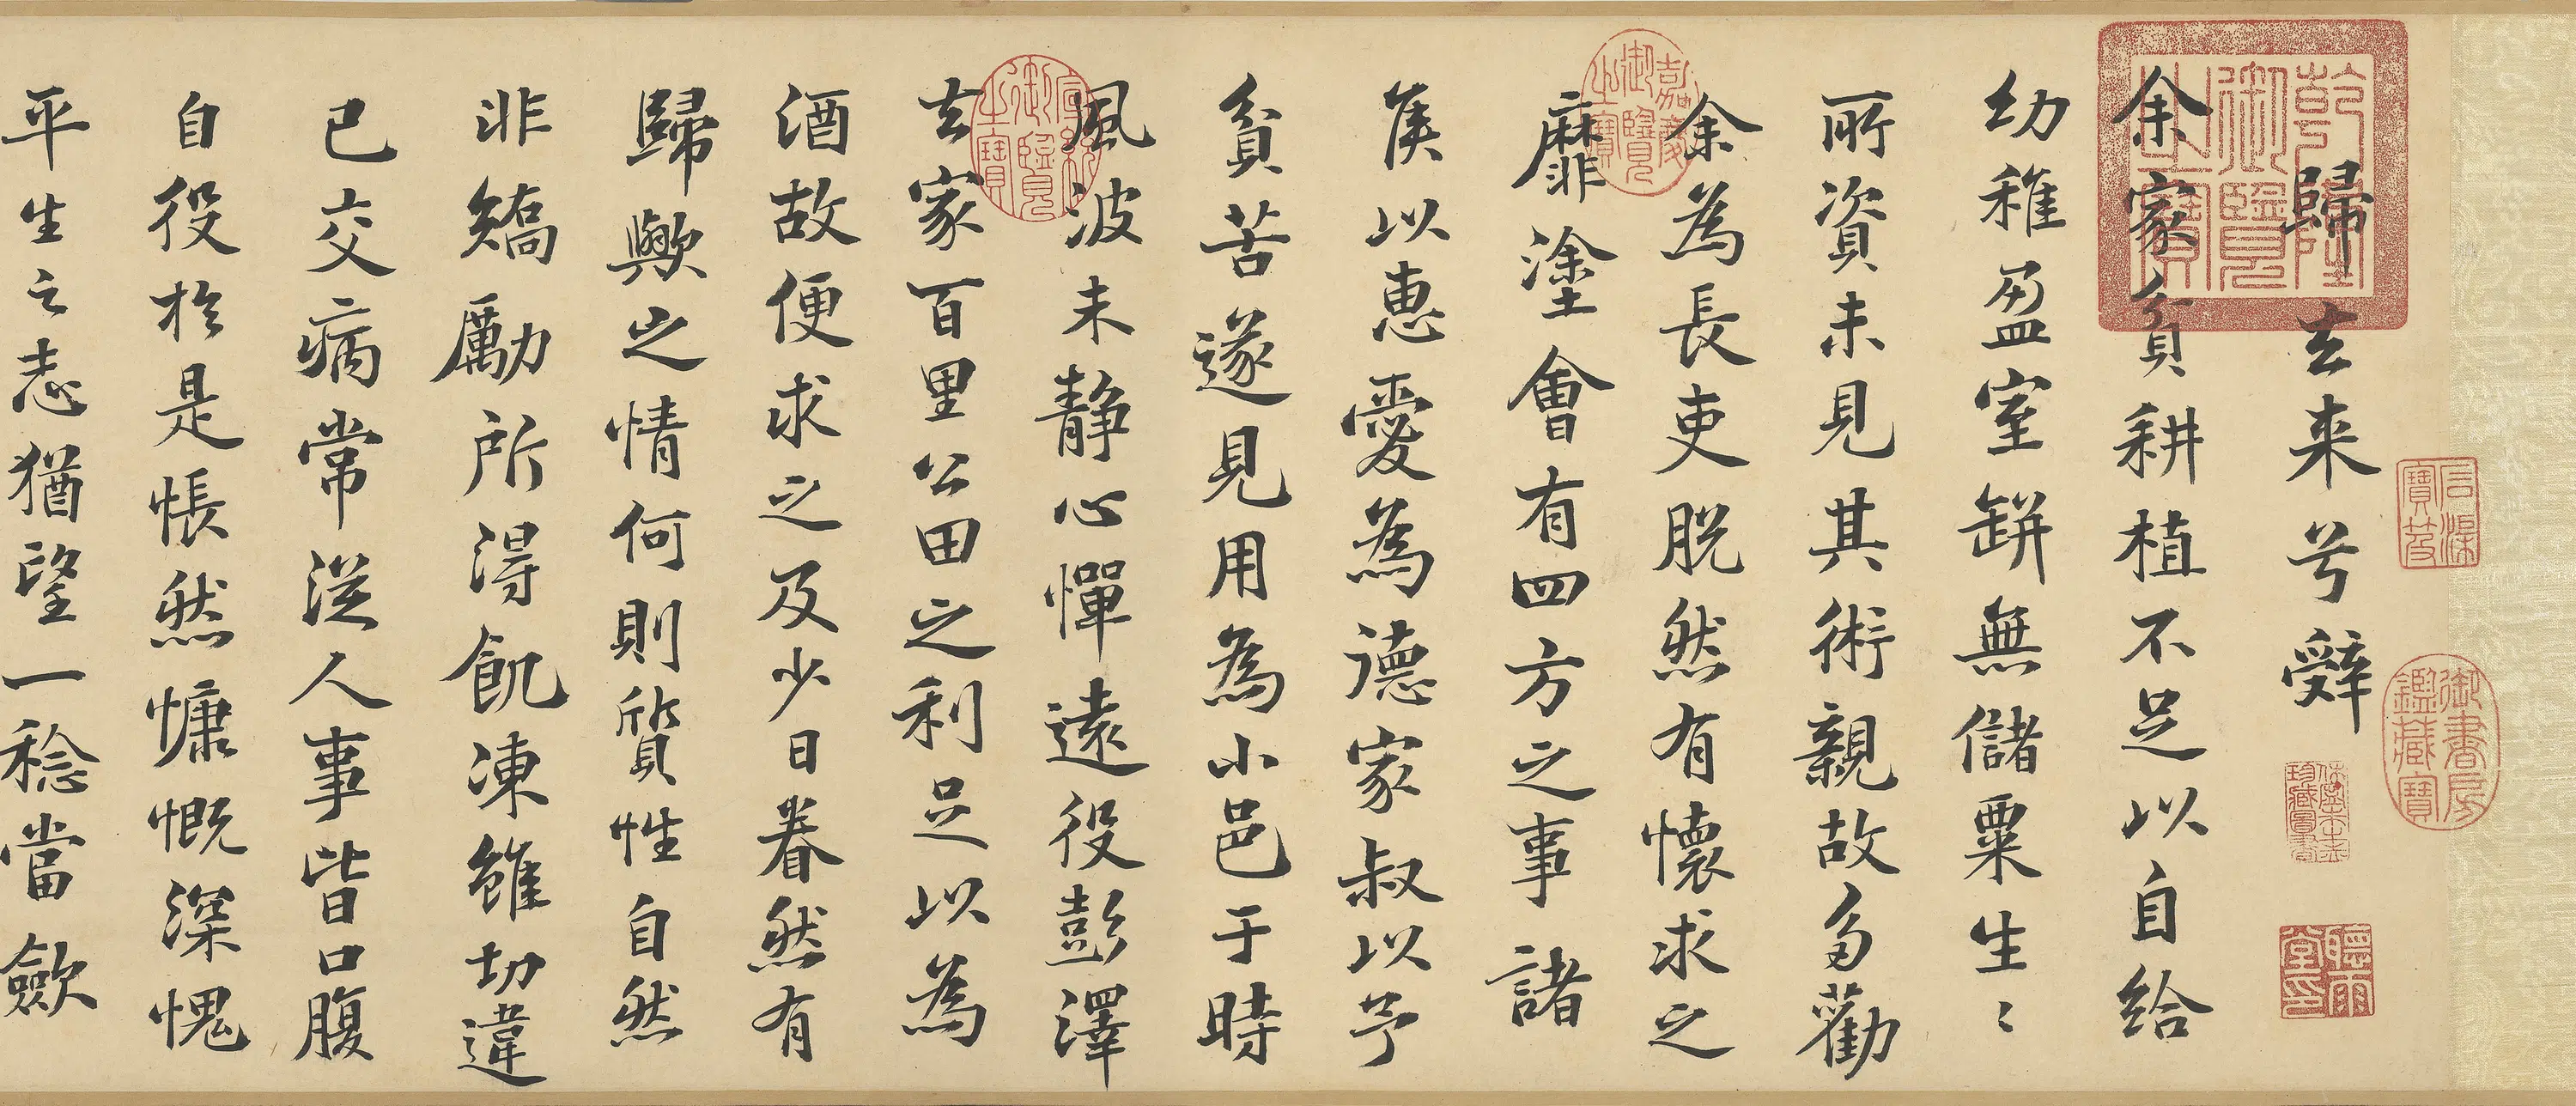 石渠寶笈
御書房鑑藏寶
乾隆御覽之寶
歸去来兮辭
余家貧耕植不足以自給
幼稚盈室缾無儲粟生〻
所資未見其術親故多勸
余為長吏脫然有懷求之
嘉慶御覽之寶
靡塗會有四方之事諸
侯以惠愛為德家叔以予
貧苦遂見用為小邑于時
風波未靜心憚遠役彭澤
宣統御覽之寶
去家百里公田之利足以為
酒故便求之及少日眷然有
歸歟之情何則質性自然
非矯勵所得飢凍雖切違
已交病常從人事皆口腹
自役於是悵然慷慨深愧
平生之志猶望一稔當歛